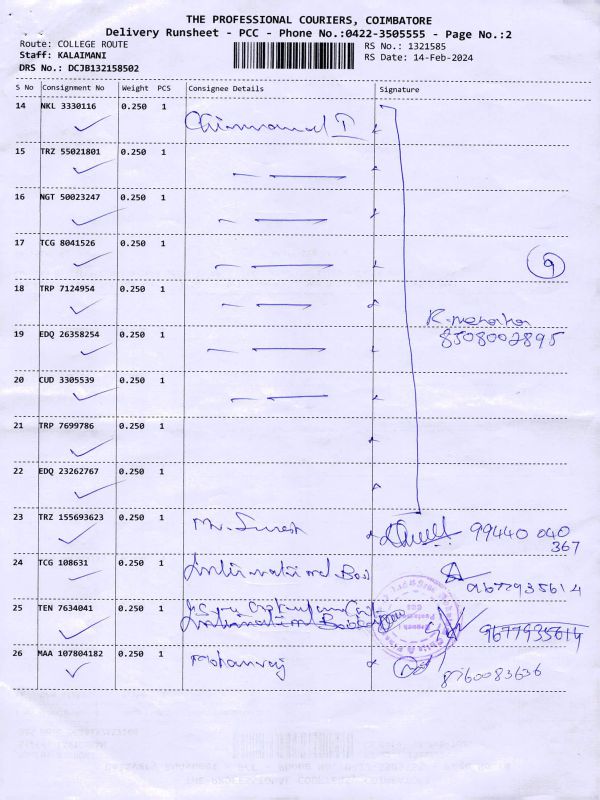 THE PROFESSIONAL COURIERS, COIMBATORE
Delivery Runsheet - PCC - Phone No.:0422-3505555 - Page No.:2
Route: COLLEGE ROUTE
RS No.: 1321585
Staff: KALAIMANI
RS Date: 14-Feb-2024
DRS No.: DCJB132158502
S No Consignment No Weight PCS Consignee Details Signature
14 NKL 3330116 0.250 1
15 TRZ 55021801 0.250 1
16 NGT 50023247 0.250 1
17 TCG 8041526 0.250 1
9
18 TRP 7124954 0.250 1
19 EDQ 26358254 0.250 1
8508002895
20 CUD 3305539 0.250 1
21 TRP 7699786 0.250 1
22 EDQ 23262767 0.250 1
23 TRZ 155693623 0.250 1 Mr. Suresh 99440 040
367
24 TCG 108631 0.250 1 International 9677935614
25 TEN 7634041 0.250 1 9677935614
26 MAA 107804182 0.250 1 Mohanraj 8760083636